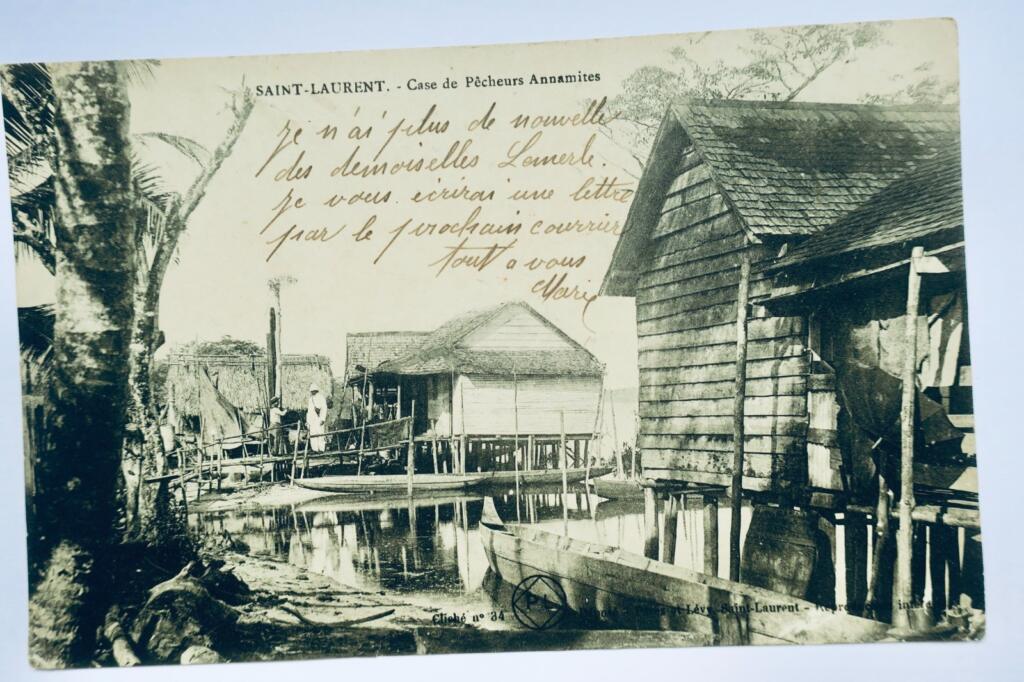 SAINT-LAURENT. - Case de Pêcheurs Annamites
je n'ai plus de nouvelle
des demoiselles Lamerle.
je vous écrirai une lettre
par le prochain courrier
tout a vous
Marie
Cliché n° 34 PL et Lévy, Saint-Laurent - Reproduction